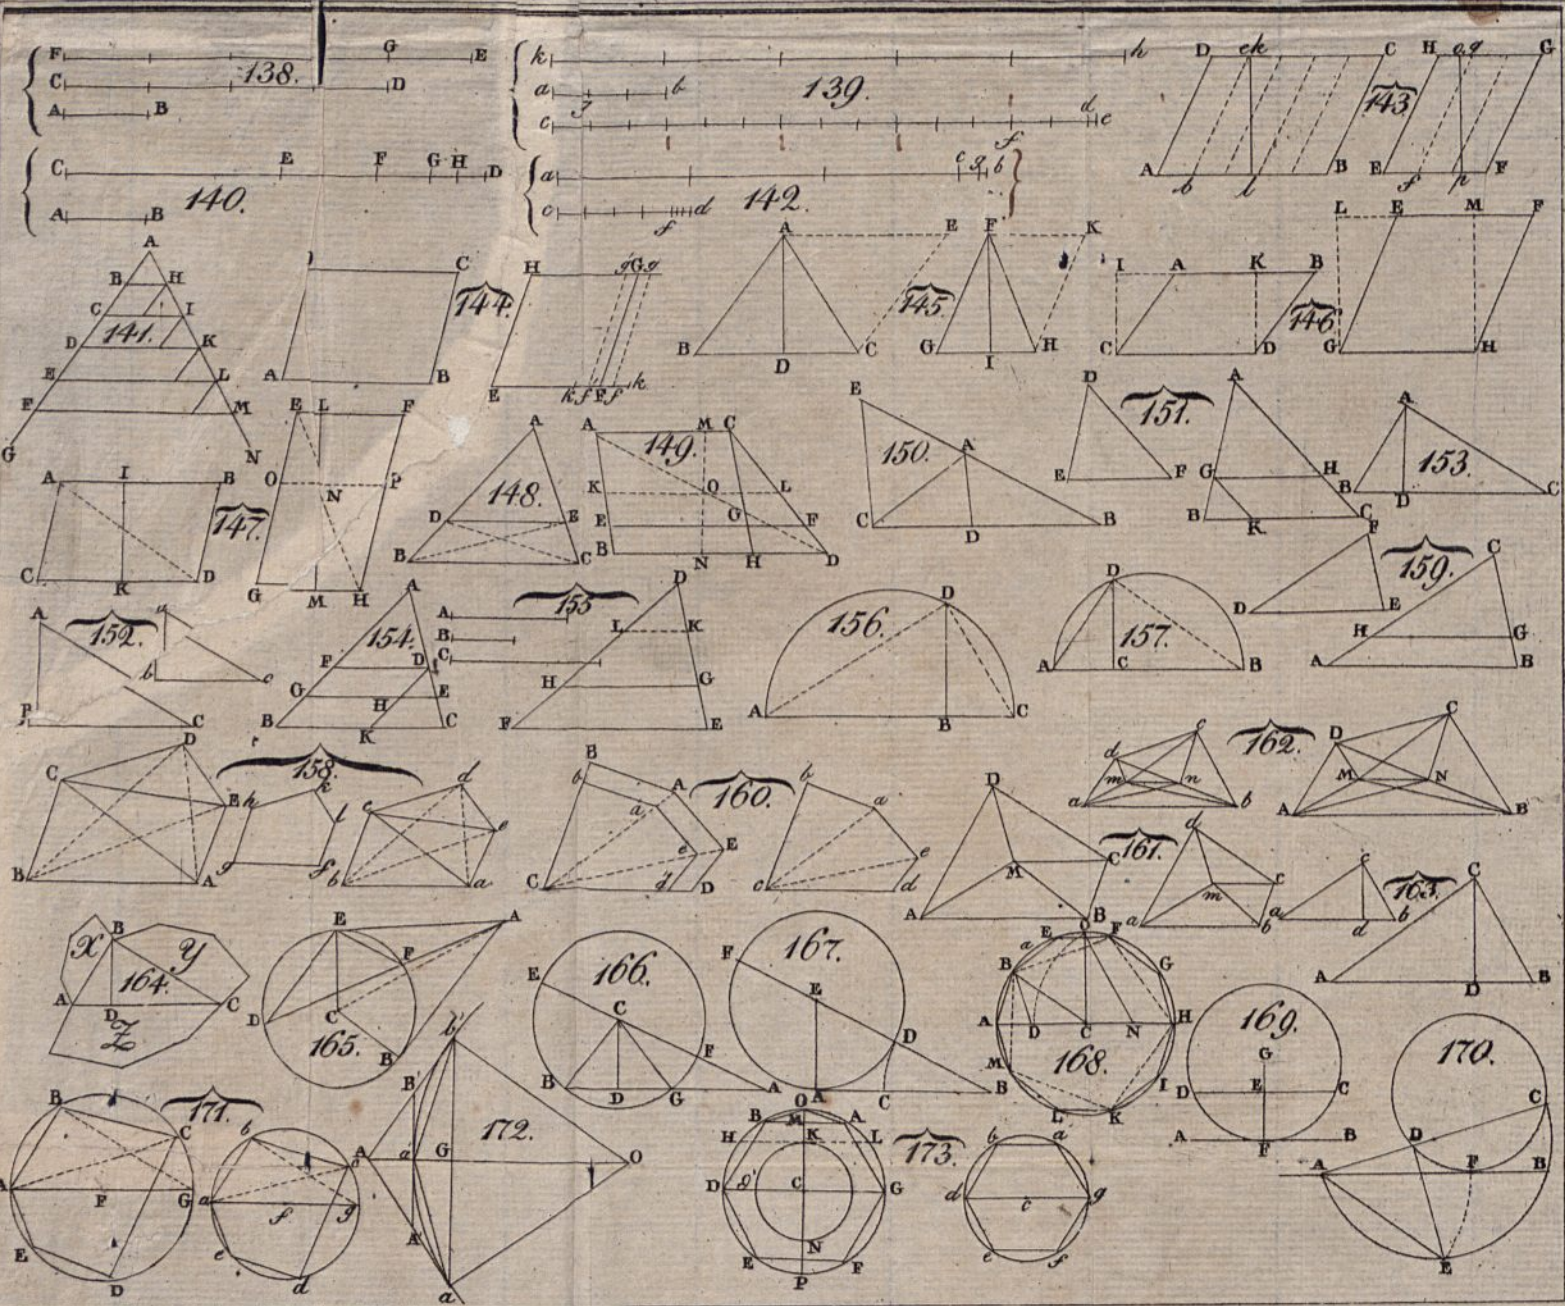 F G E
138.
C D
A B
k h
a b
139.
g
c d e
f
D e k C H o q G
143
A b l B E f p F
C E F G H D
140.
A B
a c g b
142.
c f d
A
B H
C I
141.
D K
E L
F M
G N
C H g G g
144.
A B E k f F f k
A E F K
145.
B D C G I H
I A K B
146
C D
L E M F
G H
A I B
147.
C K D
E L F
O N P
G M H
A
148.
D E
B C
A M C
149.
K O L
E G F
B N H D
E
150. A
C D B
D
151.
E F
A
G H
B K C
A
153.
B D C
A a
152.
b c
B C
A
154.
F D
G E
H
B K C
A
155
B
C
D
L K
H G
F E
D
156.
A B C
D
157.
A C B
F
159.
D E
C
H G
A B
D
C E
158.
B A
h k l
g f
d
c e
b a
B
b A
160.
a
e E
C d D
b a
e
c d
D
C
161.
M
A B
d
c
m
a b
c
d
162.
m n
a b
C
D
M N
A B
c
163.
a d b
C
A D B
B
X Y
164.
A D C
Z
E A
F
D C
165.
B
E
166.
C
F
B D G A
F
167.
E
D
A C B
a E O F
B G
A D C N H
168.
M I
L K
169.
G
D E C
A F B
170.
C
D
A F B
E
B
171.
C
A F G
E
D
b
c
a f g
e
d
b'
B'
172.
A a' G O
A'
a
O
B M A
H K L
173.
D g' C G
N
E P F
b a
d c g
e f